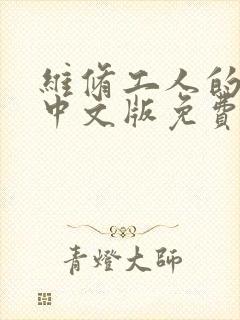 維脩工人的
中文版免費
青燈大師